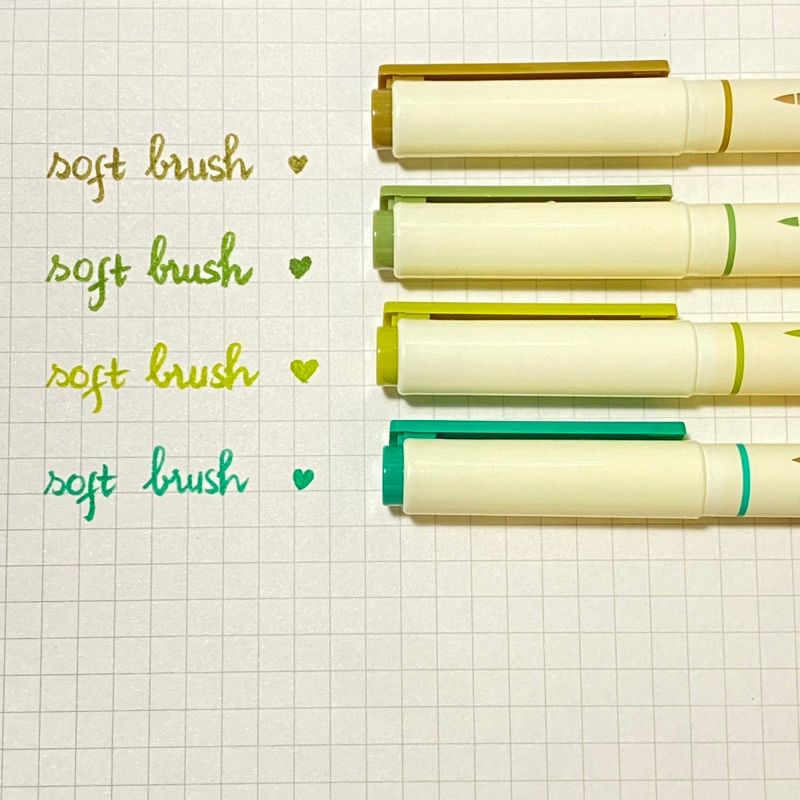 soft brush
soft brush
soft brush
soft brush